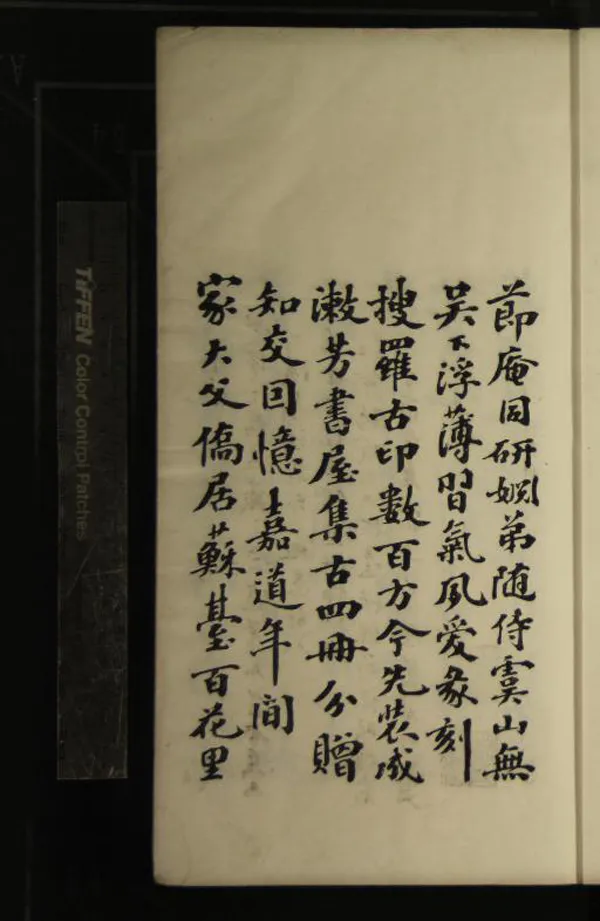 節庵同研姻弟随侍虞山無
吳下浮薄習氣夙愛篆刻
搜羅古印數百方今先裝成
漱芳書屋集古四冊分贈
知交回憶嘉道年間
家大父僑居蘇臺百花里
TIFFEN Color Control Patches